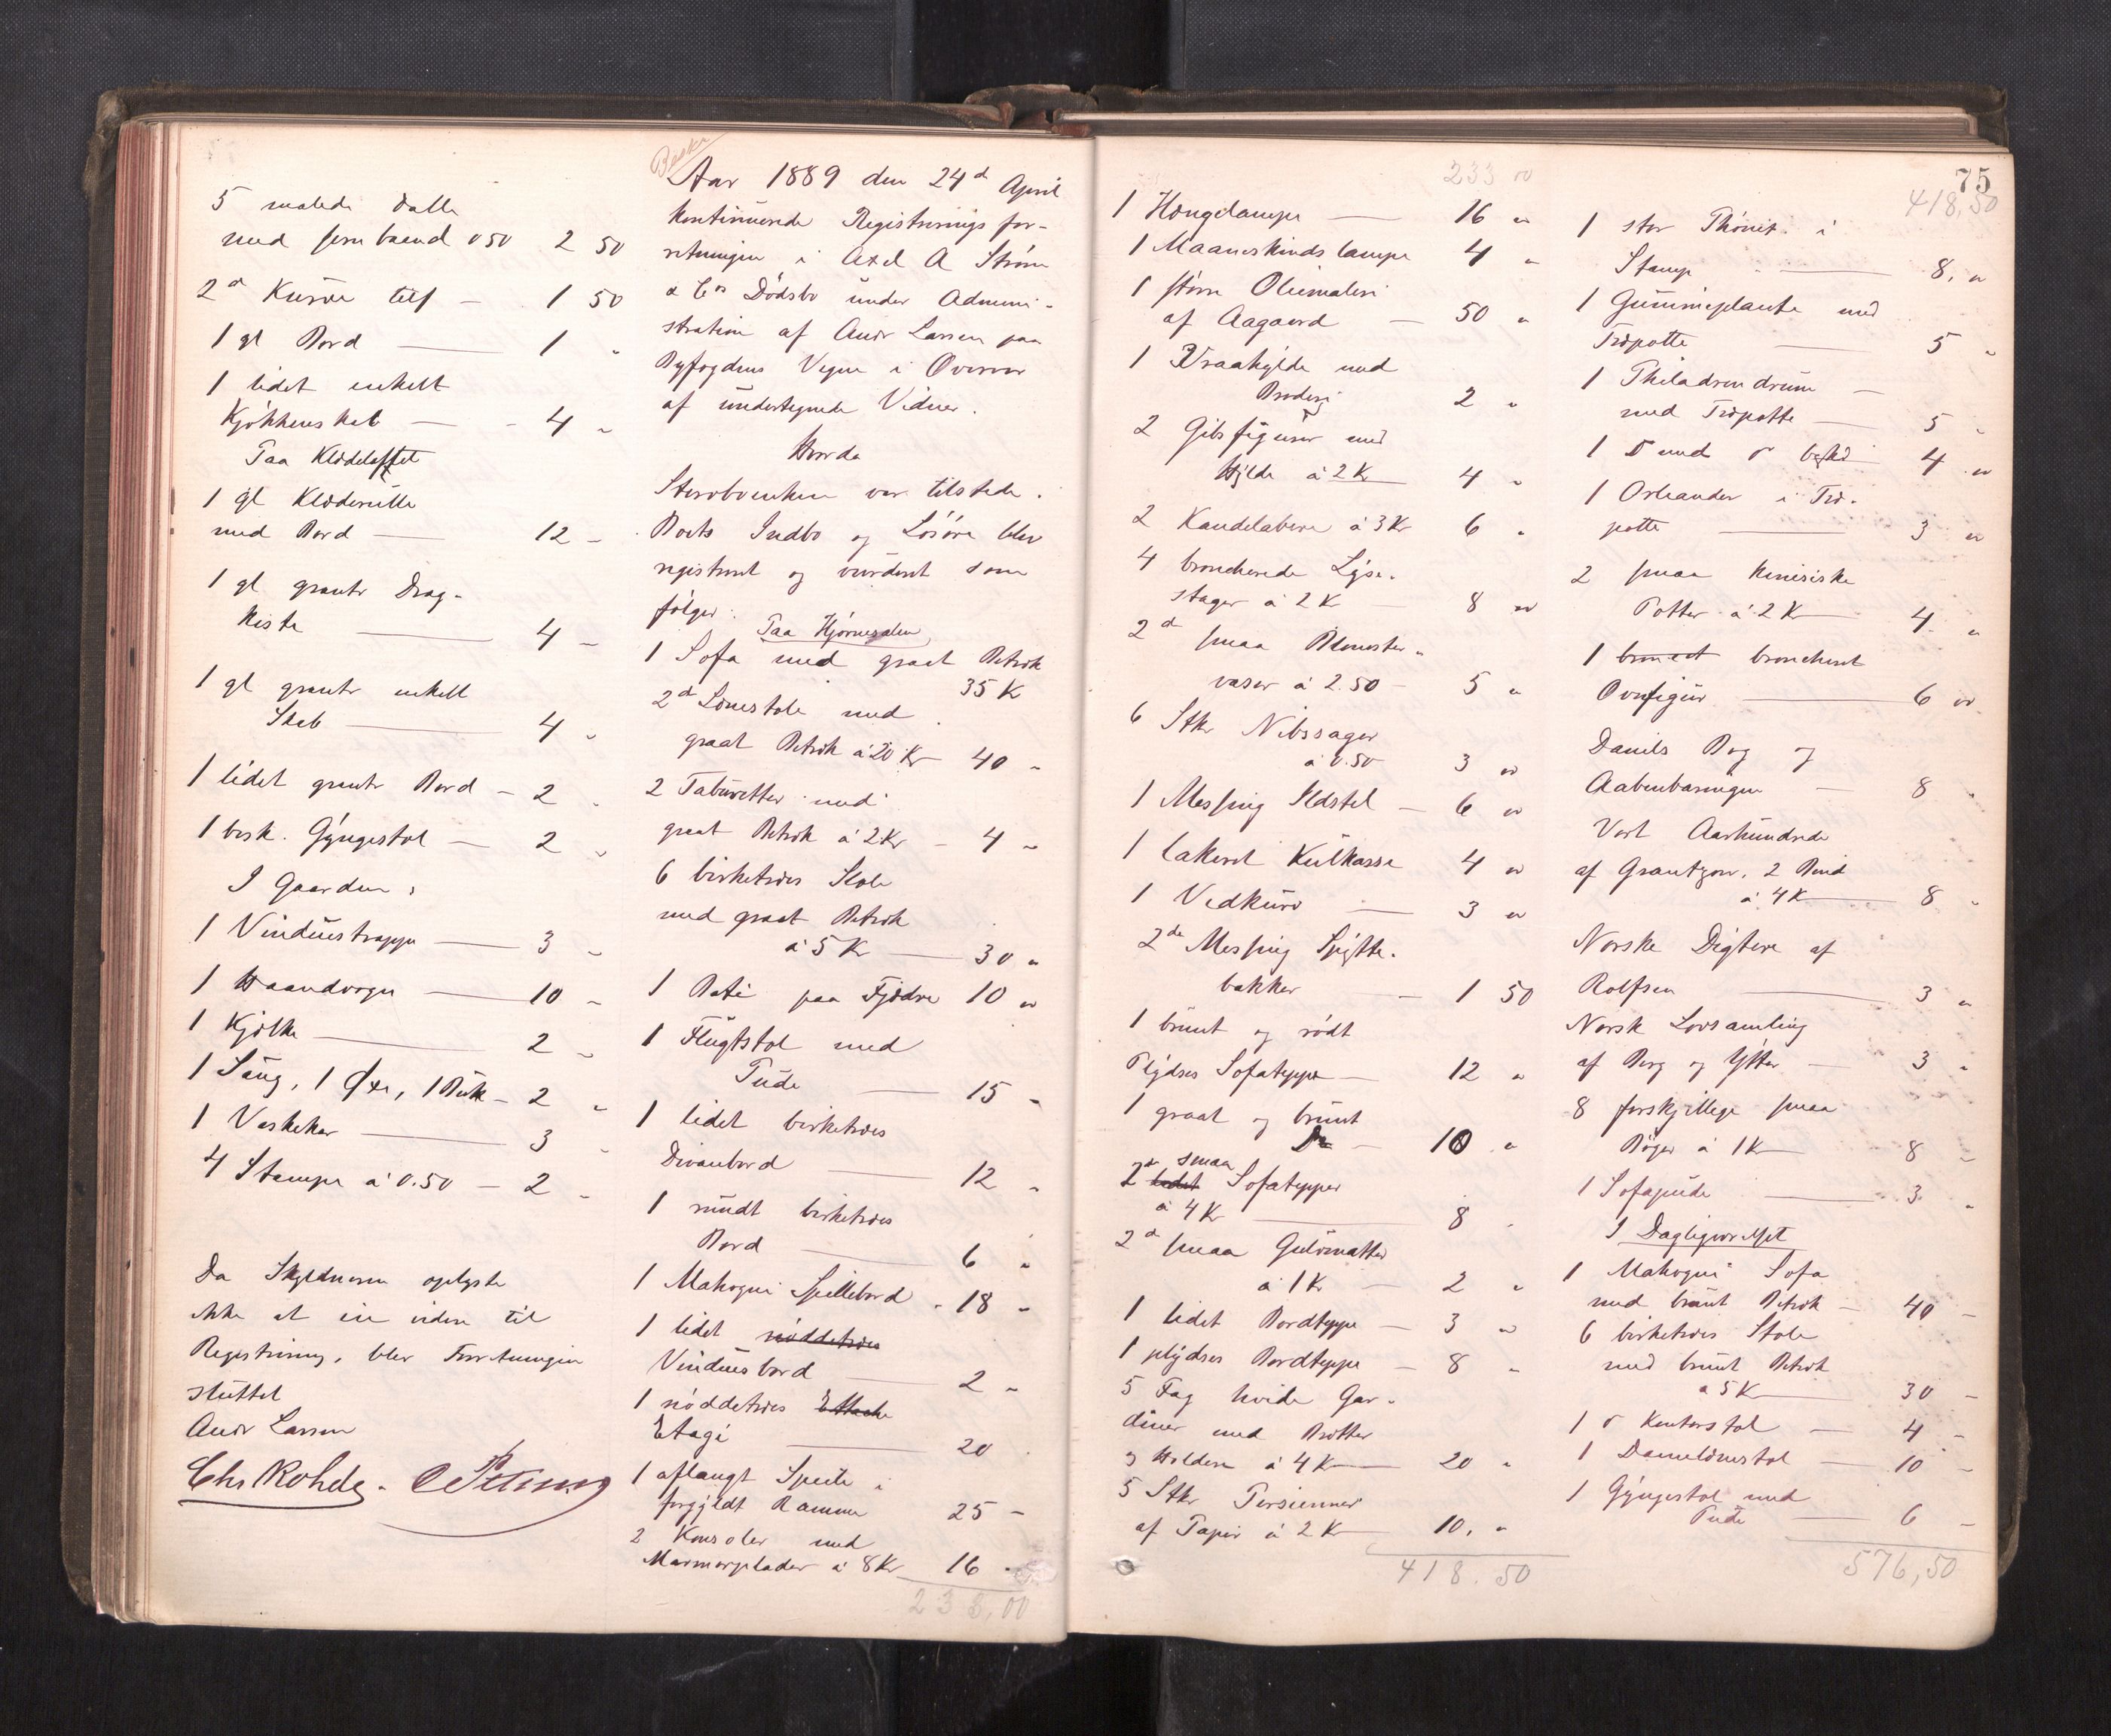 5 malede Balle
med Jernbaand 0 50 2 50
2d Kurve tils — 1 50
1 gl Bord — 1 "
1 lidet enkelt
Kjøkkenskab — 4 "
Paa Klædeloftet
1 gl Klæderulle
med Bord — 12 -
1 gl grantr Drag-
kiste — 4 -
1 gl grantr enkelt
Skab — 4 "
1 lidet grantr Bord - 2 "
1 besk. Gyngestol — 2 "
I Gaarden:
1 Vinduestrappe — 3 -
1 Haandvogn — 10 -
1 Kjølke — 2 "
1 Saug, 1 Øxe, 1 Buk - 2 "
1 Vaskekar — 3 "
4 Stampe à 0.50 — 2 -
Da Skyldneren oplyste
ikke at eie videre til
Registrering, blev Forretningen
sluttet
Andr Larsen
Chr Rohde.
Beskr
Aar 1889 den 24d April
kontinuerede Registreringsfor-
retningen i Axel A Strøm
& Co's Dødsbo under Admini-
stration af Andr Larsen paa
Byfogdens Vegne i Overvær
af undertegnede Vidner.
Hvorda
Stervboenken var tilstede.
Boets Indbo og Løsøre blev
registreret og vurderet som
følger:
Paa Hjørnesalen
1 Sofa med graat Betræk
35 K
2d Lænestole med
graat Betræk à 20 Kr 40 -
2 Taburetter med
graat Betræk à 2 Kr - 4 "
6 birketræes Stole
med graat Betræk
à 5 K — 30 "
1 Pute paa Fjædre 10 "
1 Flugtstol med
Pude — 15 -
1 lidet birketræes
Divanbord — 12 "
1 rundt birketræes
Bord — 6 "
1 Mahogni Spillebord - 18 -
1 lidet nøddetræes
Vinduesbord — 2 -
1 nøddetræes
Etagé — 20
1 aflangt Speil i
forgyldt Ramme 25 -
2 Konsoler med
Marmorplader à 8 Kr 16 -
233,00
233 00
1 Hængelampe — 16 "
1 Maaneskinds lampe 4 "
1 større Oliemaleri
af Aagaard — 50 "
1 Vraahylde med
Broderi 2 "
2 Gibsfigurer med
Hylde à 2 K 4 "
2 Kandelabere à 3 Kr 6 "
4 broncherede Lyse-
stager à 2 K 8 "
2d smaa Blomster-
vaser à 2.50 - 5 "
6 Stkr Nibssager
à 0.50 3 "
1 Messing Ildstel — 6 "
1 lakeret Kulkasse 4 "
1 Vedkurv — 3 "
2de Messing Spytte-
bakker — 1 50
1 brunt og rødt
Plydses Sofateppe — 12 "
1 graat og brunt
Do — 10 "
2d smaa Sofatepper
à 4 Kr — 8 -
2d smaa Gulvmatter
à 1 Kr — 2 "
1 lidet Bordteppe — 3 "
1 plydses Bordteppe — 8 "
5 Fag hvide Gar-
diner med Bretter
og Holdere à 4 K — 20 "
5 Stkr Persienner
af Papir à 2 K 10. "
418.50
75
418,50
1 stor Phönix i
Stamp — 8, "
1 Gummieplante med
Træpotte — 5 "
1 Philadrendrum —
med Træpotte — 5 "
1 D med 4 "
1 Orleander i Træ-
potte — 3 "
2 smaa kinisiske
Potter à 2 K — 4 "
1 broncheret
Ovnfigur — 6 "
Daniels Bog og
Aabenbaringen — 8 "
Vort Aarhundrede
af Grantzow, 2 Bind
à 4 K — 8 "
Norske Digtere af
Rolfsen — 3 "
Norsk Lovsamling
af Berg og — 3 "
8 forskjellige smaa
Bøger à 1 K 8 "
1 Sofapude — 3 "
I Dagligværelset
1 Mahogni Sofa
med brunt Betræk — 40 -
6 birketræes Stole
med brunt Betræk
à 5 K — 30 -
1 Kontorstol — 4 -
1 Damelænestol — 10 -
1 Gyngestol med
Pude — 6 -
576,50